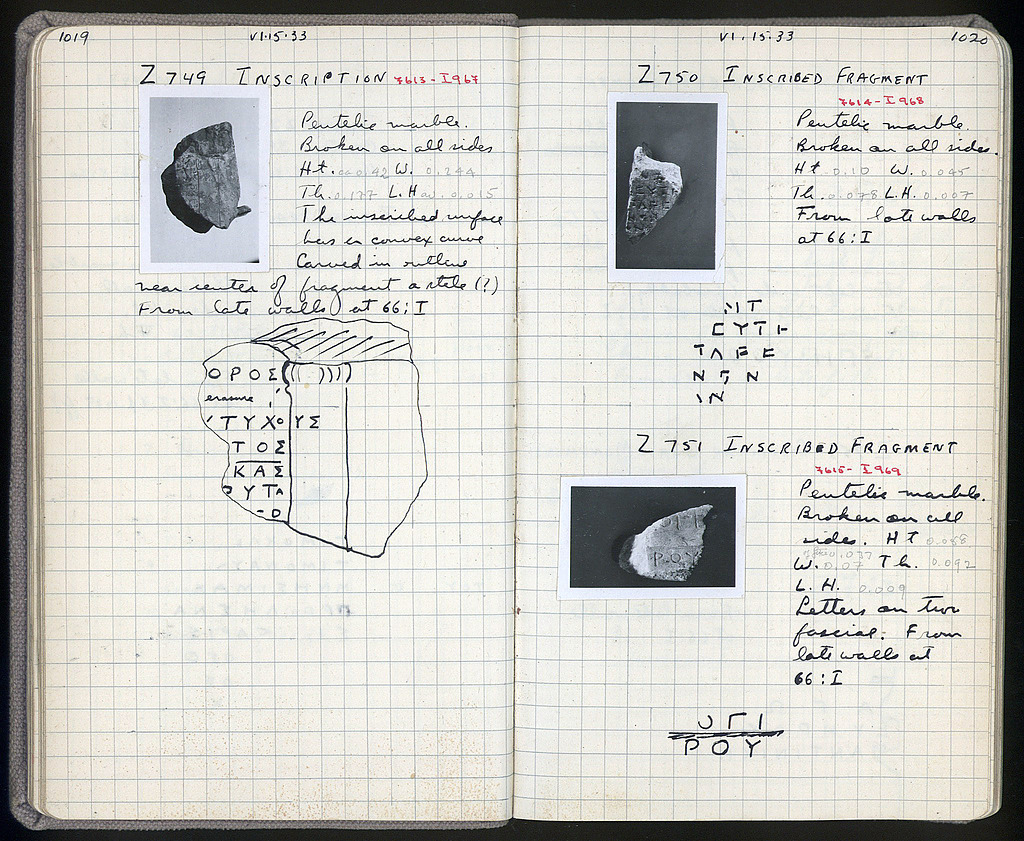 1019
VI·15·33
Z 749 INSCRIPTION 7613-I967
Pentelic marble.
Broken on all sides
Ht. 0.42 W. 0.244
Th. 0.177 L.H. 0.015
The inscribed surface
has a convex curve
Carved in outline
near center of fragment a stele (?)
From late walls at 66:I
ΟΡΟΣ
erasure
ΤΥΧΟΥΣ
ΤΟΣ
ΚΑΣ
ΥΤΑ
VI.15.33
1020
Z 750 INSCRIBED FRAGMENT
7614-I968
Pentelic marble.
Broken on all sides.
Ht 0.10 W. 0.045
Th. 0.078 L.H. 0.007
From late walls
at 66:I
Τ
ΥΤ
ΤΛ
Ν Ν
Ν
Z 751 INSCRIBED FRAGMENT
7615-I969
Pentelic marble.
Broken on all
sides. HT 0.058
0.037
W. 0.07 Th. 0.092
L.H. 0.009
Letters on two
fasciai: From
late walls at
66:I
ΓΙ
ΡΟΥ